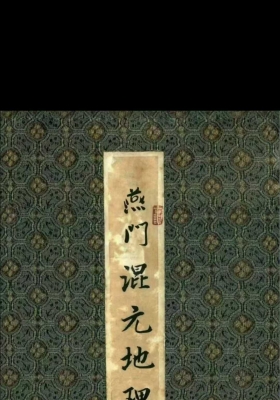 燕門混元地理